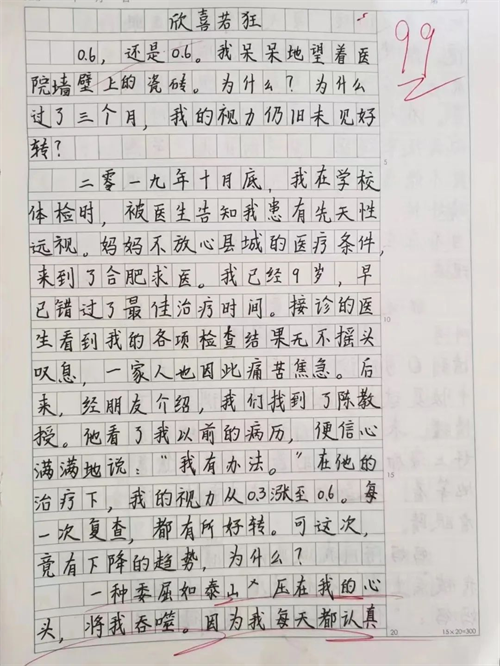 欣喜若狂
99
0.6,还是0.6。我呆呆地望着医
院墙壁上的瓷砖。为什么?为什么
过了三个月,我的视力仍旧未见好
转?
二零一九年十月底,我在学校
体检时,被医生告知我患有先天性
远视。妈妈不放心县城的医疗条件,
来到了合肥求医。我已经9岁,早
已错过了最佳治疗时间。接诊的医
生看到我的各项检查结果无不摇头
叹息,一家人也因此痛苦焦急。后
来,经朋友介绍,我们找到了陈教
授。他看了我以前的病历,便信心
满满地说:“我有办法。”在他的
治疗下,我的视力从0.3涨至0.6。每
一次复查,都有所好转。可这次,
竟有下降的趋势,为什么?
一种委屈如泰山压在我的心
头,将我吞噬。因为我每天都认真
5
10
15
20
15×20=300